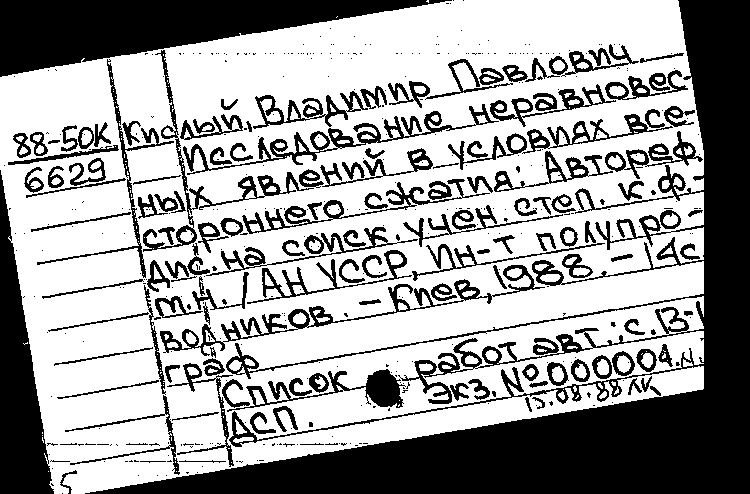 88-50К
6629
Кислый, Владимир Павлович.
Исследование неравновес-
ных явлений в условиях все-
стороннего сжатия: Автореф.
дис. на соиск. учен. степ. к.ф.-
м.н. / АН УССР, Ин-т полупро-
водников. - Киев, 1988. - 14с.
граф.
Список работ авт.: с. 13-1
ДСП. Экз. №000004.
15.08.88
5